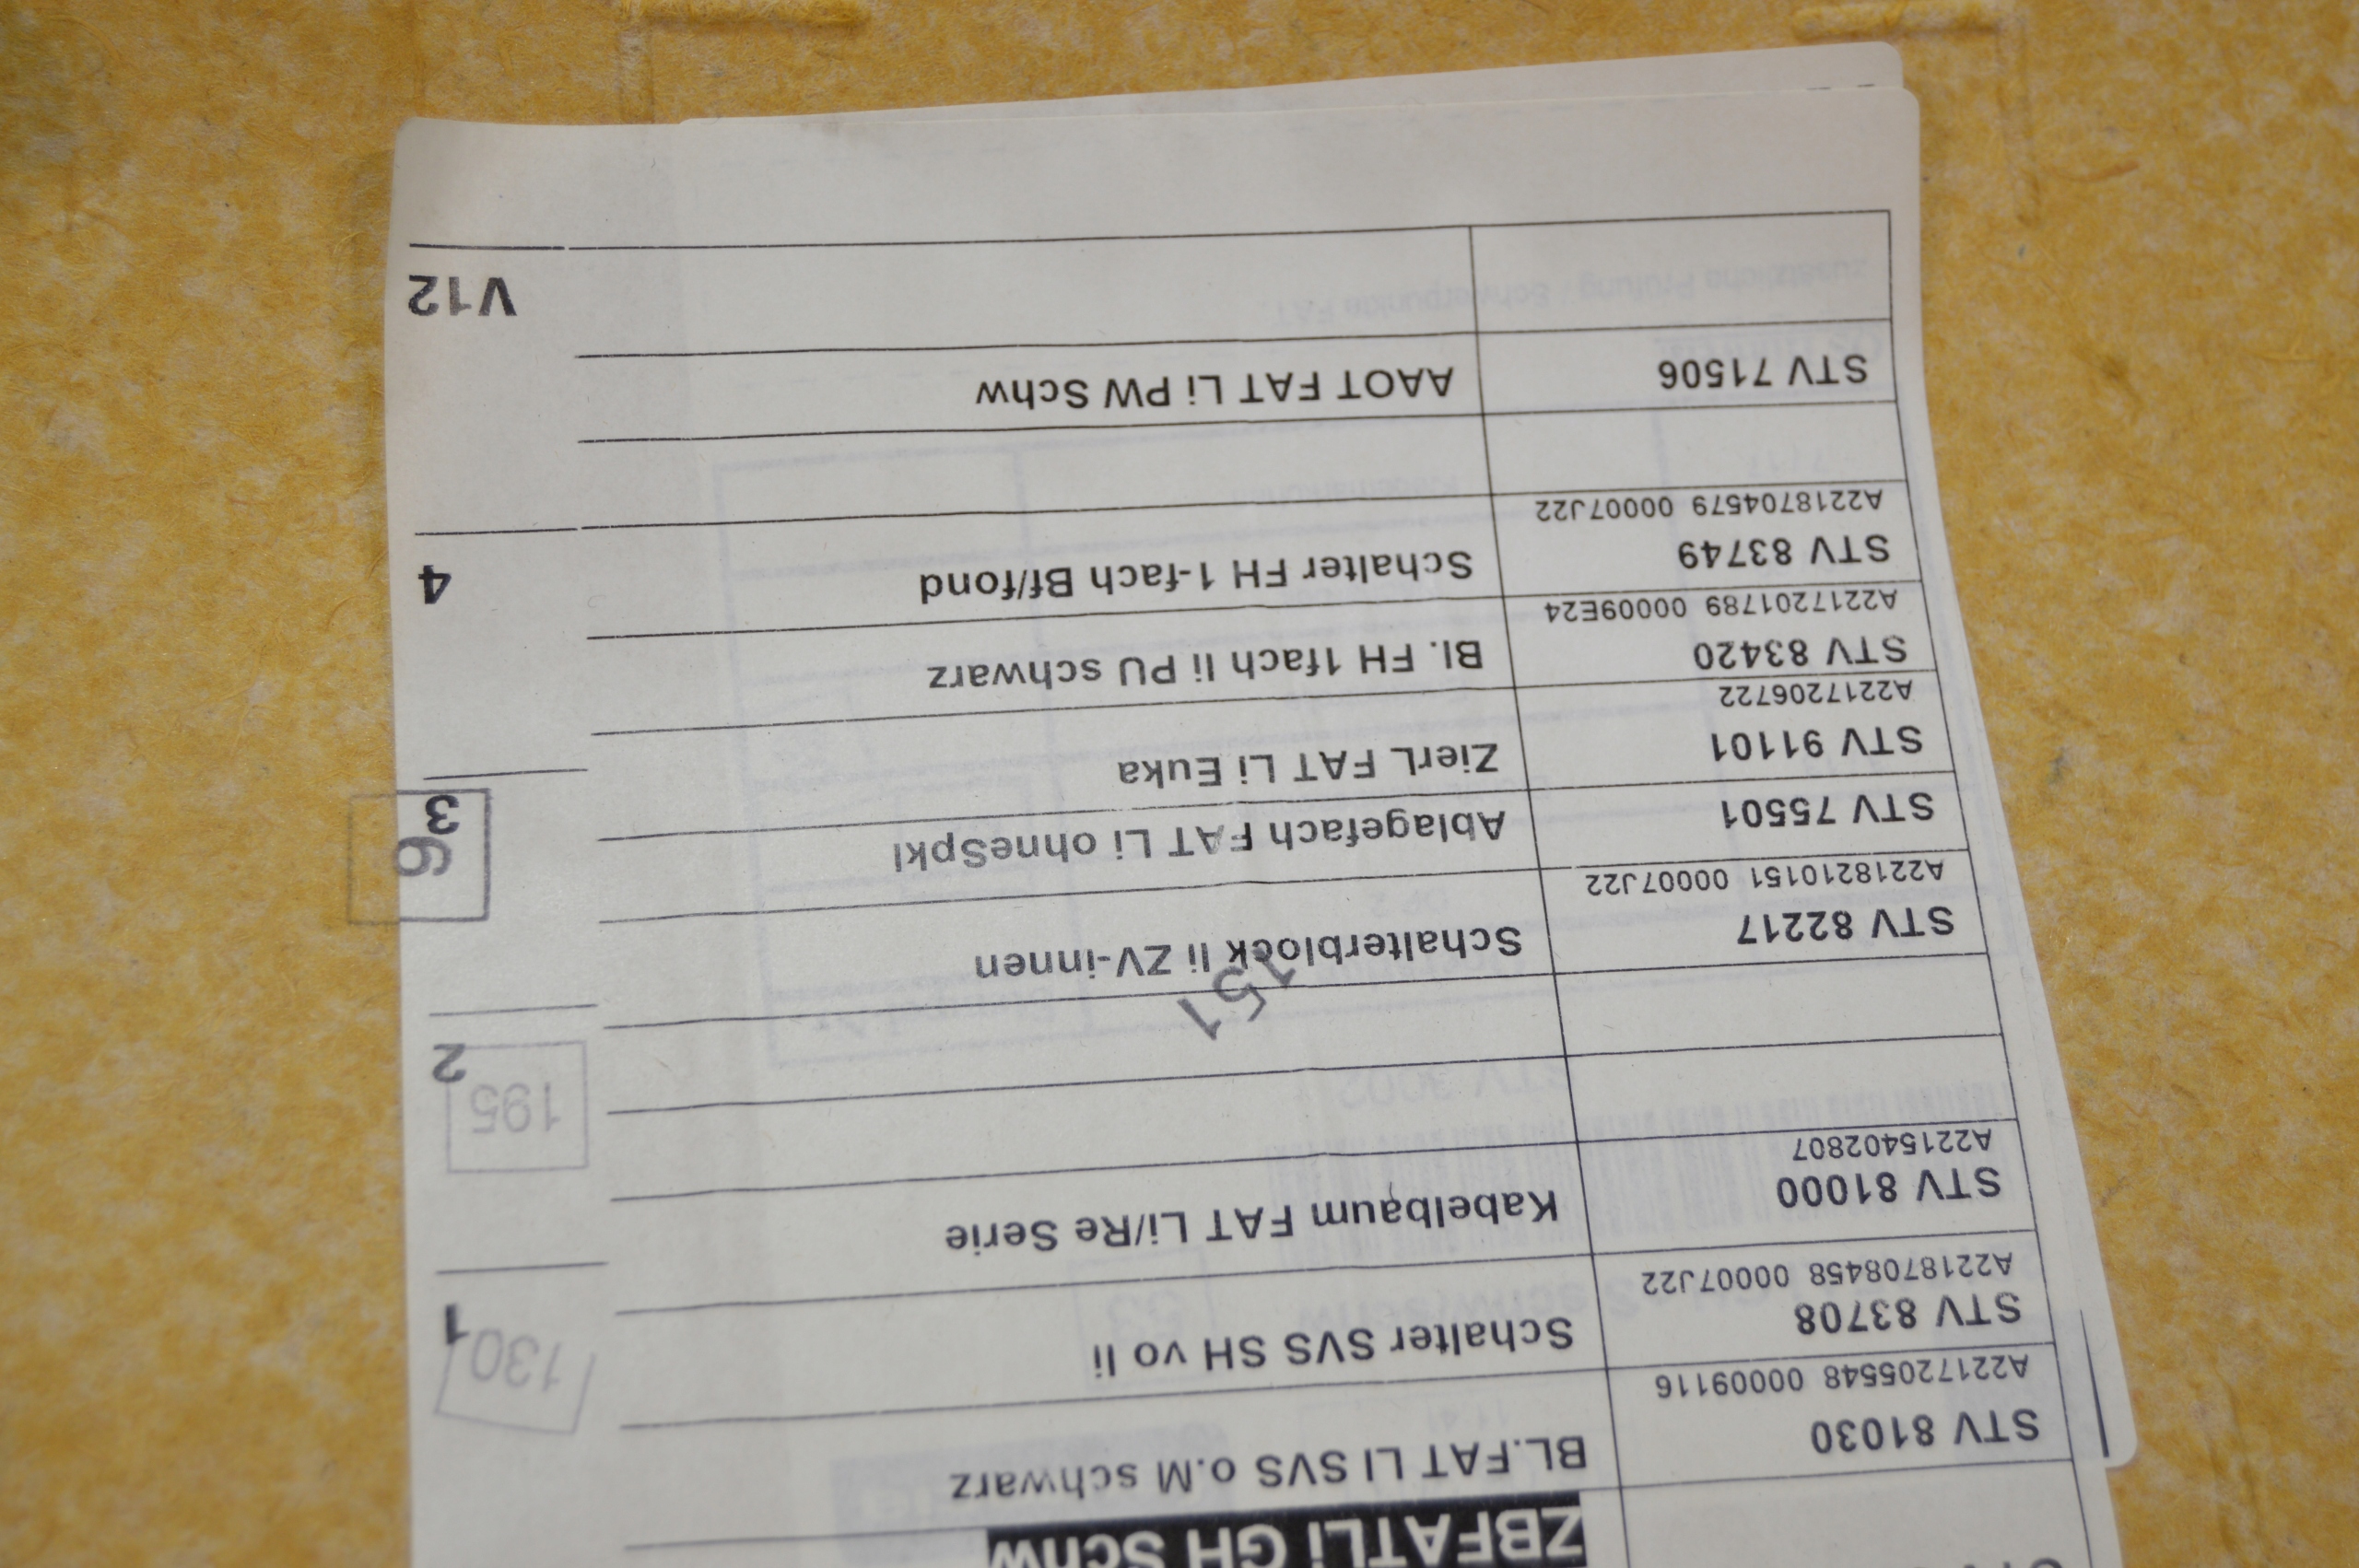 ZBFATLi GH Schw
STV 81030
A2217205548 00009116
BL.FAT LI SVS o.M schwarz
STV 83708
A2218708458 00007J22
Schalter SVS SH vo li
130
1
STV 81000
A2215402807
Kabelbaum FAT Li/Re Serie
195
2
151
STV 82217
A2218210151 00007J22
Schalterblock li ZV-innen
36
STV 75501
Ablagefach FAT Li ohneSpkl
3
STV 91101
A2217206722
ZierL FAT Li Euka
STV 83420
A2217201789 00009E24
Bl. FH 1fach li PU schwarz
STV 83749
A2218704579 00007J22
Schalter FH 1-fach Bf/fond
4
STV 71506
AAOT FAT Li PW Schw
V12